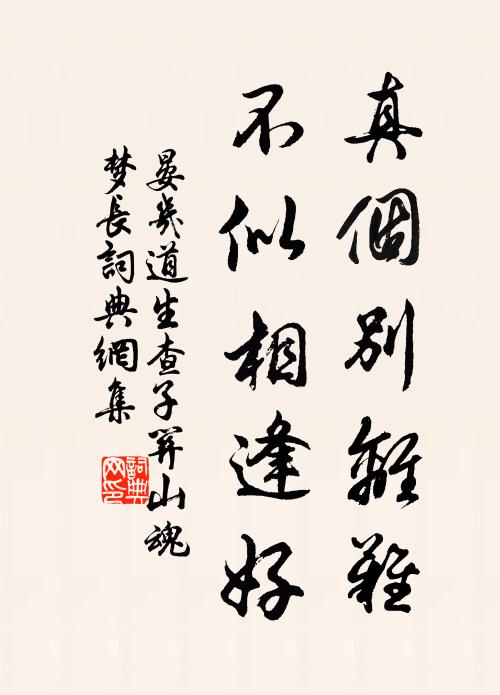 真個別離難
不似相逢好
晏幾道生查子關山魂
梦長詞典網集
詞典網印